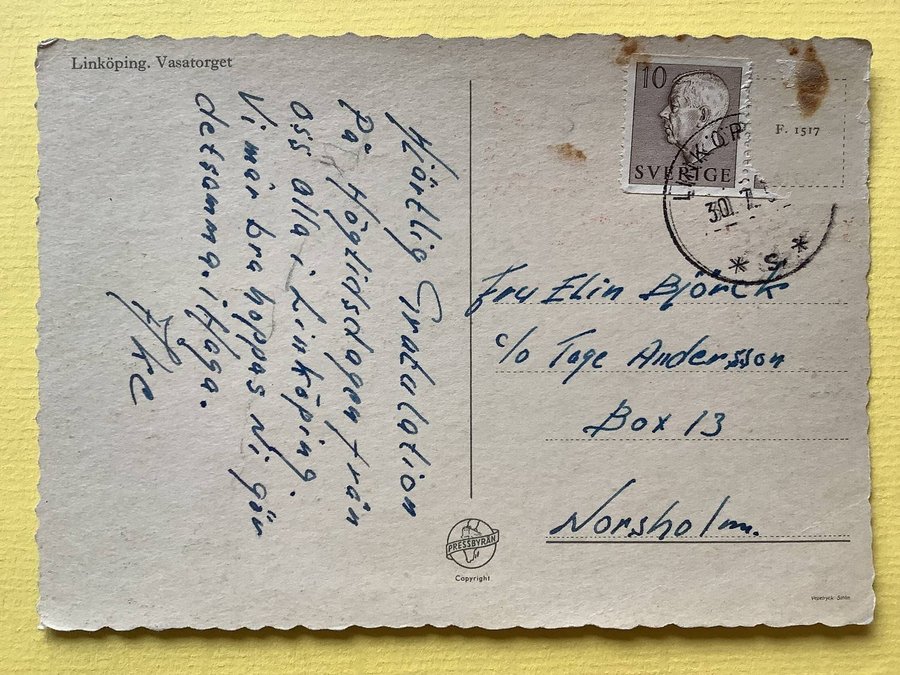 Linköping. Vasatorget
Hjärtlig Gratulation
På Högtidsdagen från
oss alla i Linköping.
Vi mår bra hoppas Ni gör
detsamma. i Haga.
Åke
10
SVERIGE
F. 1517
LINKÖP
30. 7.
* S *
Fru Elin Björck
c/o Tage Andersson
Box 13
Norsholm.
PRESSBYRÅN
Copyright